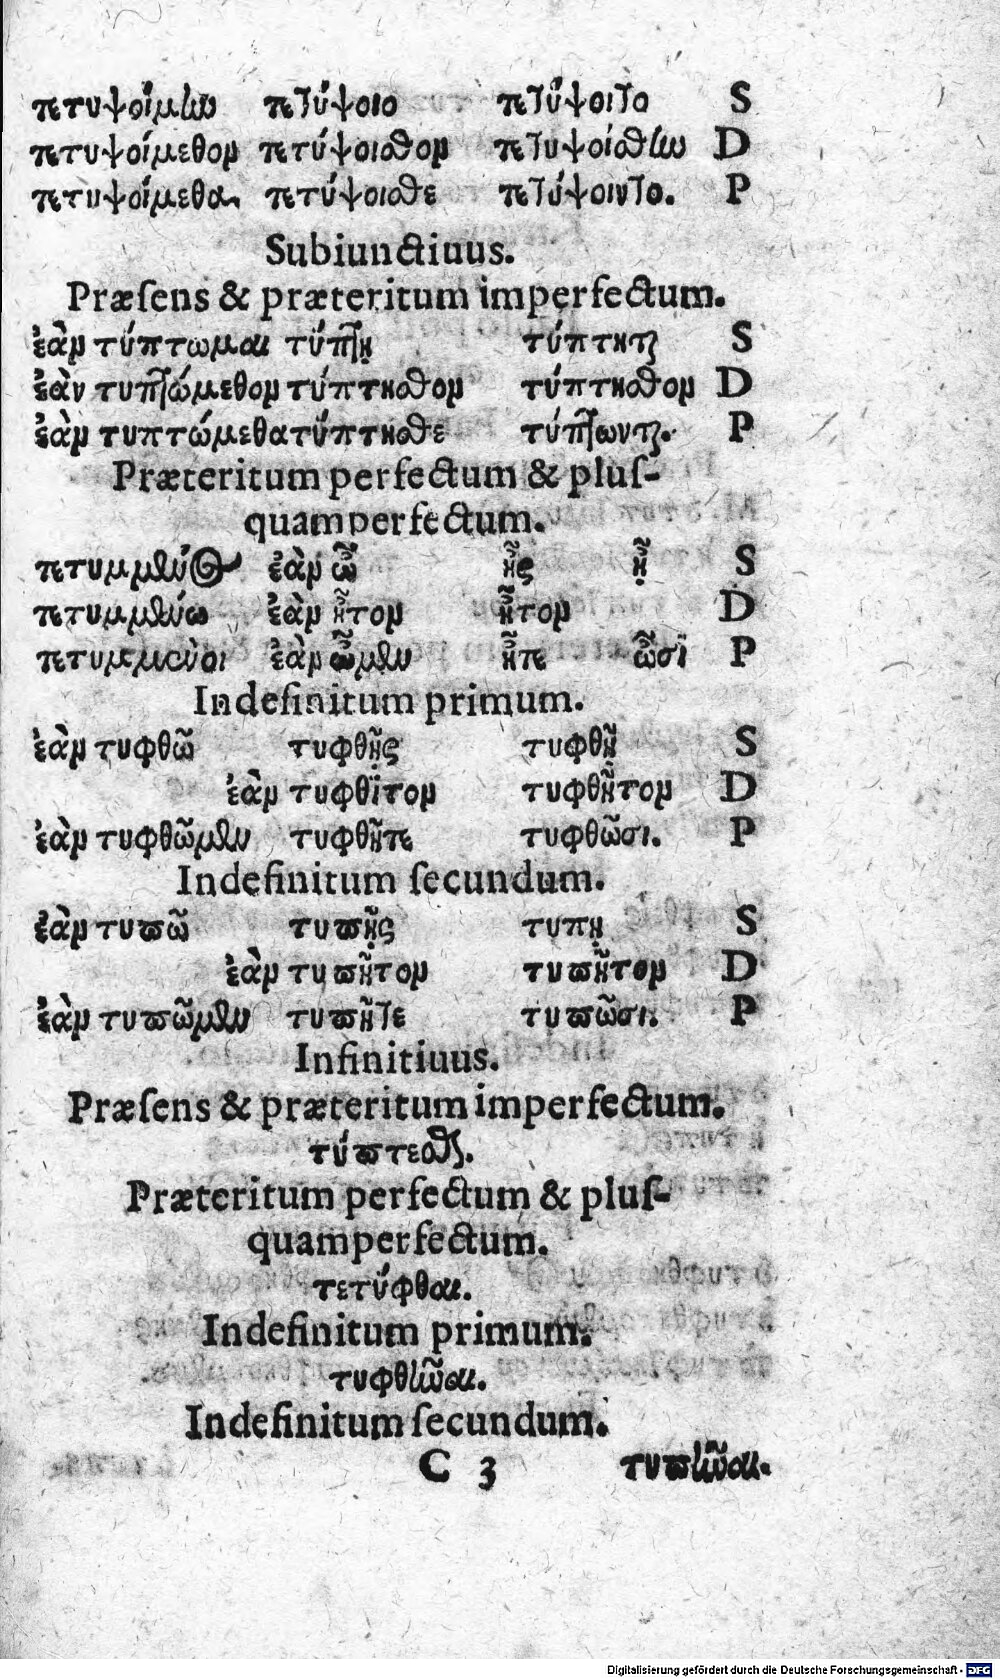 πετυψοίμην πετύψοιο πετύψοιτο S
πετυψοίμεθον πετύψοισθον πετυψοίσθην D
πετυψοίμεθα, πετύψοισθε πετύψοιντο. P
Subiunctiuus.
Præſens & præteritum imperfectum.
ἐὰν τύπτωμαι τύπτῃ τύπτηται S
ἐὰν τυπτώμεθον τύπτησθον τύπτησθον D
ἐὰν τυπτώμεθα τύπτησθε τύπτωνται. P
Præteritum perfectum & pluſ-
quamperfectum.
τετυμμένος ἐὰν ὦ ᾖς ᾖ S
τετυμμένω ἐὰν ἦτον ἦτον D
τετυμμένοι ἐὰν ὦμεν ἦτε ὦσι P
Indefinitum primum.
ἐὰν τυφθῶ τυφθῇς τυφθῇ S
ἐὰν τυφθῆτον τυφθῆτον D
ἐὰν τυφθῶμεν τυφθῆτε τυφθῶσι. P
Indefinitum ſecundum.
ἐὰν τυπῶ τυπῇς τυπῃ S
ἐὰν τυπῆτον τυπῆτον D
ἐὰν τυπῶμεν τυπῆτε τυπῶσι. P
Infinitiuus.
Præſens & præteritum imperfectum.
τύπτεσθαι.
Præteritum perfectum & pluſ-
quamperfectum.
τετύφθαι.
Indefinitum primum.
τυφθῆναι.
Indefinitum ſecundum.
C 3 τυπῆναι.
Digitalisierung gefördert durch die Deutsche Forschungsgemeinschaft - DFG